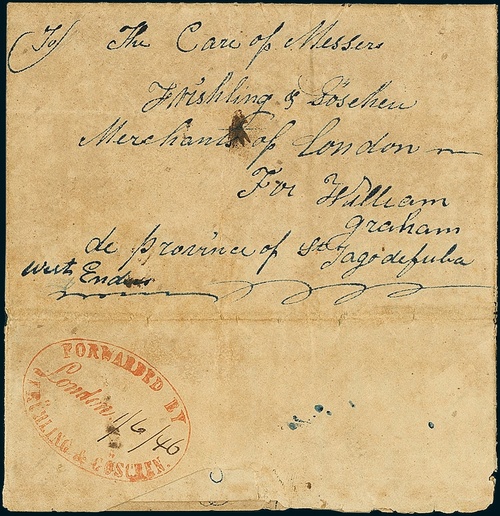 (To) The Care of Messers
Früshling & Göschen
Merchants of London
For William
Graham
de province of St Jagodecuba
West Endies
FORWARDED BY
London
1/6/46
FRÜHLING & GÖSCHEN.